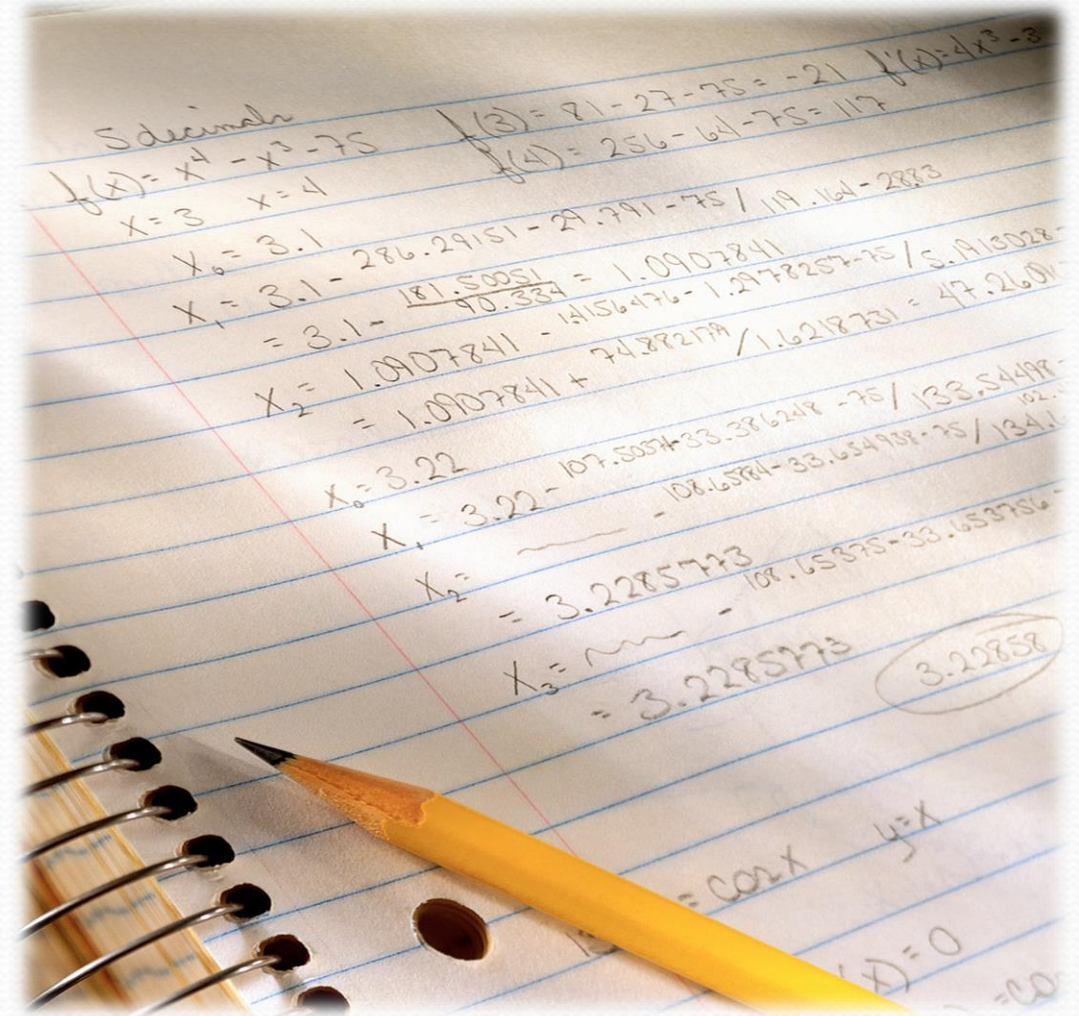 5 decimals
f(x) = x⁴ - x³ - 75 f(3) = 81 - 27 - 75 = -21 f'(x) = 4x³ - 3
x = 3 x = 4 f(4) = 256 - 64 - 75 = 117
x₀ = 3.1
x₁ = 3.1 - 286.29151 - 29.791 - 75 / 119.164 - 2883
= 3.1 - 181.50051 / 90.334 = 1.0907841
x₂ = 1.0907841 - 1.4156476 - 1.2978257 - 75 / 5.1913028 -
= 1.0907841 + 74.882179 / 1.6218731 = 47.260
x₀ = 3.22
x₁ = 3.22 - 107.50574 - 33.386248 - 75 / 133.54498 -
x₂ = - 108.65784 - 33.654938 - 75 / 134.
= 3.2285773
x₃ = - 108.65375 - 33.653756 -
= 3.2285773 3.22858
= cos x y = x
(x) = 0
= co